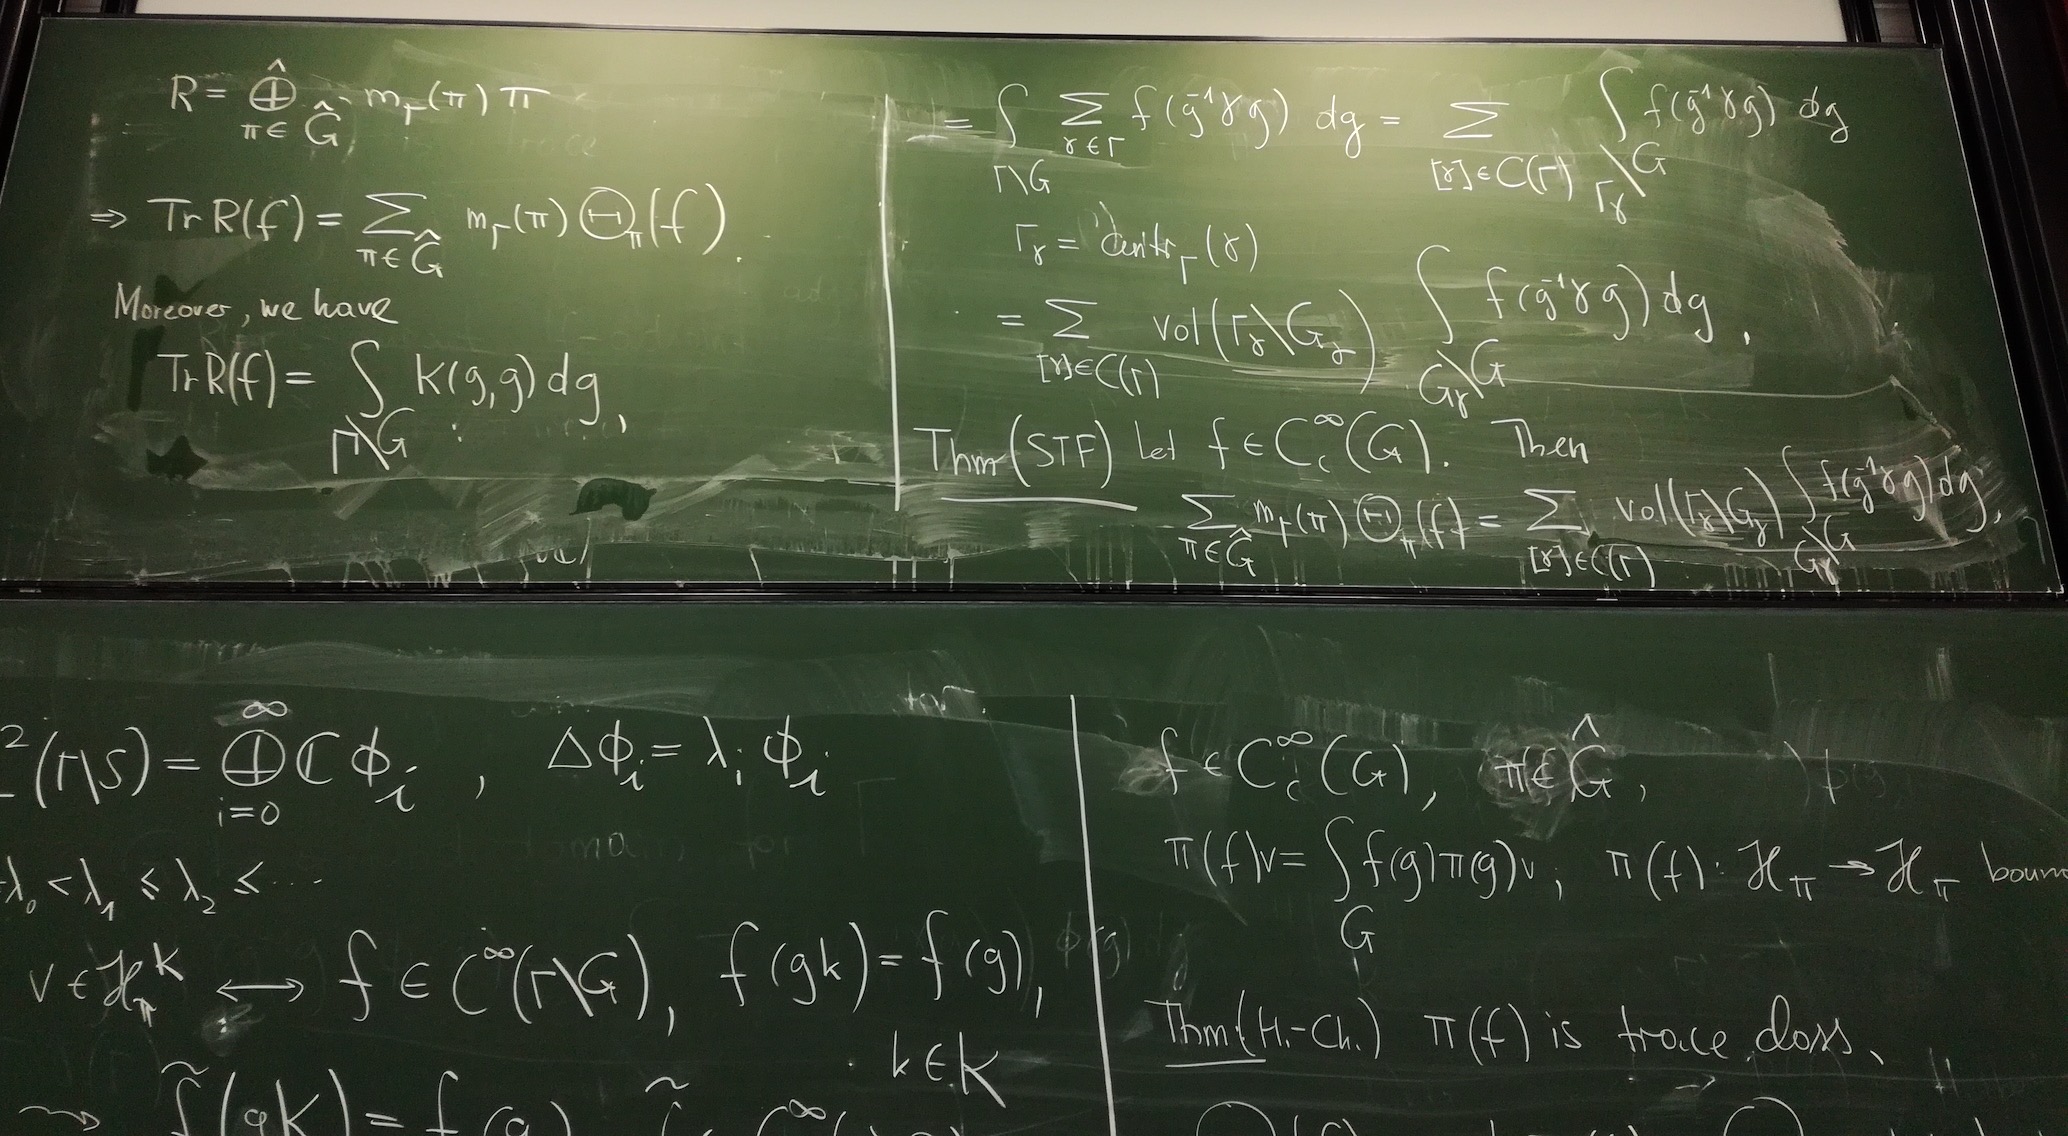 R = ⊕̂_{π∈Ĝ} m_Γ(π) π
⇒ Tr R(f) = Σ_{π∈Ĝ} m_Γ(π) Θ_π(f).
Moreover, we have
Tr R(f) = ∫_{Γ\G} K(g,g) dg,
= ∫_{Γ\G} Σ_{γ∈Γ} f(g⁻¹γg) dg = Σ_{[γ]∈C(Γ)} ∫_{Γ_γ\G} f(g⁻¹γg) dg
Γ_γ = Centr_Γ(γ)
= Σ_{[γ]∈C(Γ)} vol(Γ_γ\G_γ) ∫_{G_γ\G} f(g⁻¹γg) dg,
Thm (STF) Let f ∈ C_c^∞(G). Then
Σ_{π∈Ĝ} m_Γ(π) Θ_π(f) = Σ_{[γ]∈C(Γ)} vol(Γ_γ\G_γ) ∫_{G_γ\G} f(g⁻¹γg) dg,
²(Γ\S) = ⊕_{i=0}^∞ ℂ ϕ_i , Δϕ_i = λ_i ϕ_i
λ_0 < λ_1 ≤ λ_2 ≤ ...
v ∈ ℋ_π^K ⟷ f ∈ C^∞(Γ\G), f(gk) = f(g),
k ∈ K
f̃(gK) = f(g)
f ∈ C_c^∞(G), π ∈ Ĝ,
π(f)v = ∫_G f(g)π(g)v, π(f): ℋ_π → ℋ_π boun
Thm (H.-Ch.) π(f) is trace class.